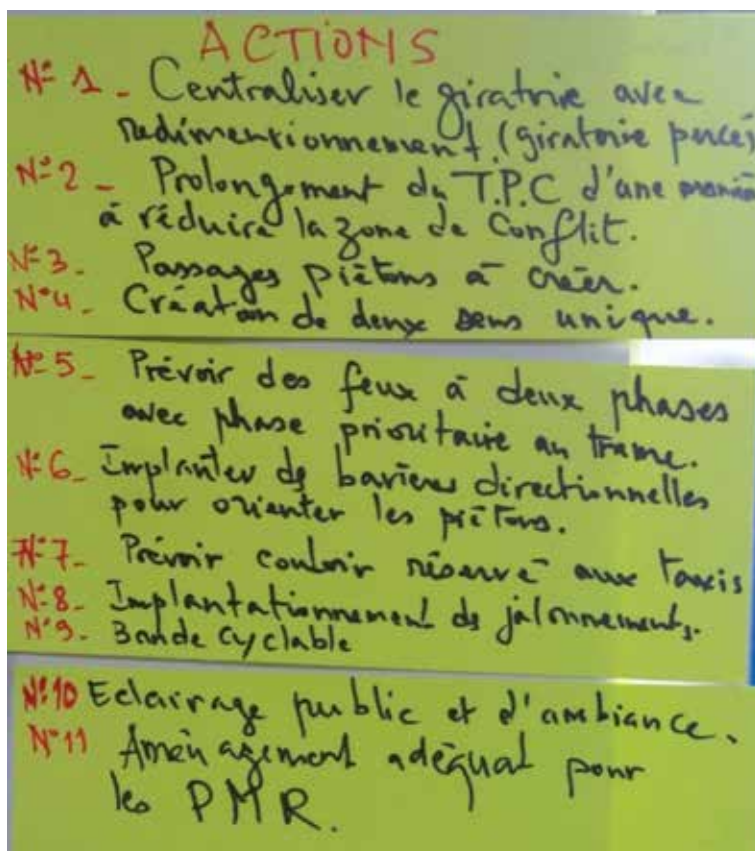 ACTIONS
N° 1 - Centraliser le giratoire avec
redimentionnement. (giratoire percé)
N° 2 - Prolongement du T.P.C d'une manière
à réduire la zone de Conflit.
N° 3 - Passages piétons à créer.
N° 4 - Création de deux sens unique.
N° 5 - Prévoir des feux à deux phases
avec phase prioritaire au trame.
N° 6 - Implanter de barières directionnelles
pour orienter les piétons.
N° 7 - Prévoir couloir réservé aux taxis
N° 8 - Implantationnement de jalonnements.
N° 9 - Bande cyclable
N° 10 Eclairage public et d'ambiance.
N° 11 Aménagement adéquat pour
les PMR.